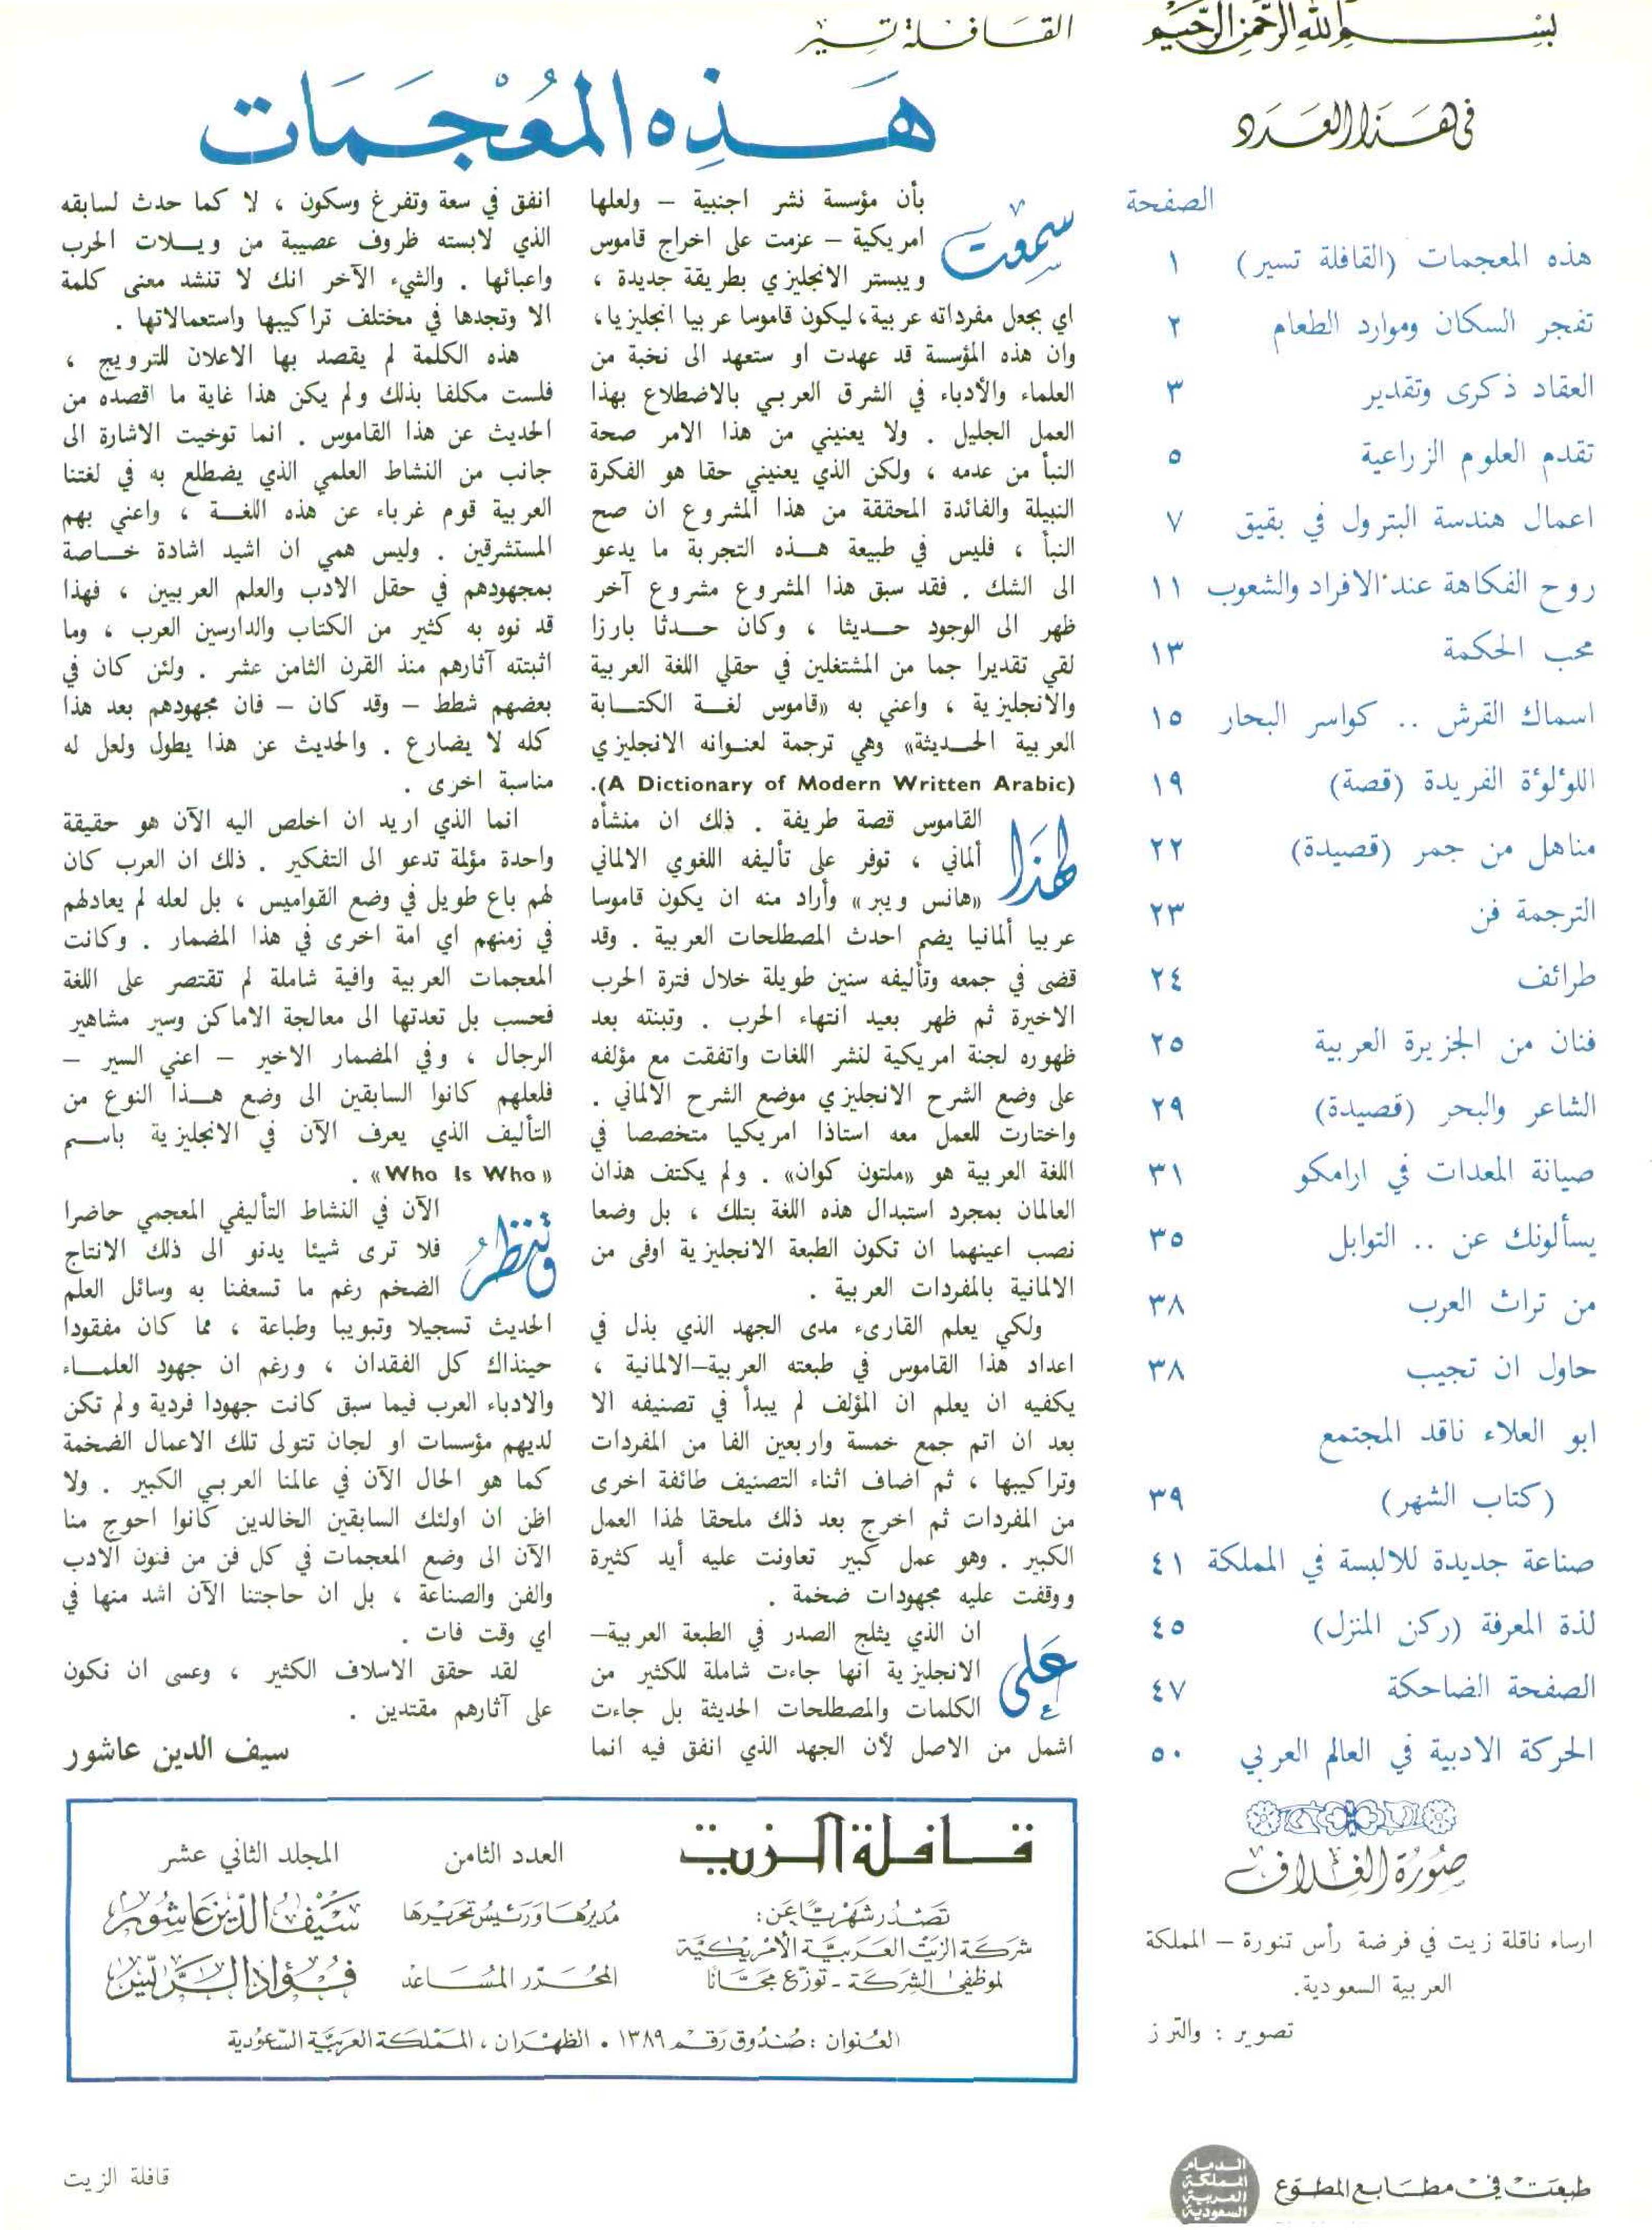 بسم الله الرحمن الرحيم
في هذا العدد
الصفحة
هذه المعجمات (القافلة تسير) ١
تفجر السكان وموارد الطعام ٢
العقاد ذكرى وتقدير ٣
تقدم العلوم الزراعية ٥
اعمال هندسة البترول في بقيق ٧
روح الفكاهة عند الافراد والشعوب ١١
محب الحكمة ١٣
اسماك القرش .. كواسر البحار ١٥
اللؤلؤة الفريدة (قصة) ١٩
مناهل من جمر (قصيدة) ٢٢
الترجمة فن ٢٣
طرائف ٢٤
فنان من الجزيرة العربية ٢٥
الشاعر والبحر (قصيدة) ٢٩
صيانة المعدات في ارامكو ٣١
يسألونك عن .. التوابل ٣٥
من تراث العرب ٣٨
حاول ان تجيب ٣٨
ابو العلاء ناقد المجتمع
(كتاب الشهر) ٣٩
صناعة جديدة للالبسة في المملكة ٤١
لذة المعرفة (ركن المنزل) ٤٥
الصفحة الضاحكة ٤٧
الحركة الادبية في العالم العربي ٥٠
صورة الغلاف
ارساء ناقلة زيت في فرضة رأس تنورة – المملكة
العربية السعودية.
تصوير : والترز
طبعت في مطابع المطوع
الدمام
المملكة
العربية
السعودية
القافلة تسير
هذه المعجمات
سمعت بأن مؤسسة نشر اجنبية – ولعلها
امريكية – عزمت على اخراج قاموس
ويبستر الانجليزي بطريقة جديدة ،
اي بجعل مفرداته عربية، ليكون قاموسا عربيا انجليزيا،
وان هذه المؤسسة قد عهدت او ستعهد الى نخبة من
العلماء والأدباء في الشرق العربي بالاضطلاع بهذا
العمل الجليل . ولا يعنيني من هذا الامر صحة
النبأ من عدمه ، ولكن الذي يعنيني حقا هو الفكرة
النبيلة والفائدة المحققة من هذا المشروع ان صح
النبأ ، فليس في طبيعة هذه التجربة ما يدعو
الى الشك . فقد سبق هذا المشروع مشروع آخر
ظهر الى الوجود حديثا ، وكان حدثا بارزا
لقي تقديرا جما من المشتغلين في حقلي اللغة العربية
والانجليزية ، واعني به «قاموس لغة الكتابة
العربية الحديثة» وهي ترجمة لعنوانه الانجليزي
(A Dictionary of Modern Written Arabic).
لهذا القاموس قصة طريفة . ذلك ان منشأه
ألماني ، توفر على تأليفه اللغوي الالماني
«هانس ويبر» وأراد منه ان يكون قاموسا
عربيا ألمانيا يضم احدث المصطلحات العربية . وقد
قضى في جمعه وتأليفه سنين طويلة خلال فترة الحرب
الاخيرة ثم ظهر بعيد انتهاء الحرب . وتبنته بعد
ظهوره لجنة امريكية لنشر اللغات واتفقت مع مؤلفه
على وضع الشرح الانجليزي موضع الشرح الالماني .
واختارت للعمل معه استاذا امريكيا متخصصا في
اللغة العربية هو «ملتون كوان» . ولم يكتف هذان
العالمان بمجرد استبدال هذه اللغة بتلك ، بل وضعا
نصب اعينهما ان تكون الطبعة الانجليزية اوفى من
الالمانية بالمفردات العربية .
ولكي يعلم القارىء مدى الجهد الذي بذل في
اعداد هذا القاموس في طبعته العربية–الالمانية ،
يكفيه ان يعلم ان المؤلف لم يبدأ في تصنيفه الا
بعد ان اتم جمع خمسة واربعين الفا من المفردات
وتراكيبها ، ثم اضاف اثناء التصنيف طائفة اخرى
من المفردات ثم اخرج بعد ذلك ملحقا لهذا العمل
الكبير . وهو عمل كبير تعاونت عليه أيد كثيرة
ووقفت عليه مجهودات ضخمة .
على ان الذي يثلج الصدر في الطبعة العربية–
الانجليزية انها جاءت شاملة للكثير من
الكلمات والمصطلحات الحديثة بل جاءت
اشمل من الاصل لأن الجهد الذي انفق فيه انما
انفق في سعة وتفرغ وسكون ، لا كما حدث لسابقه
الذي لابسته ظروف عصيبة من ويلات الحرب
واعبائها . والشيء الآخر انك لا تنشد معنى كلمة
الا وتجدها في مختلف تراكيبها واستعمالاتها .
هذه الكلمة لم يقصد بها الاعلان للترويج ،
فلست مكلفا بذلك ولم يكن هذا غاية ما اقصده من
الحديث عن هذا القاموس . انما توخيت الاشارة الى
جانب من النشاط العلمي الذي يضطلع به في لغتنا
العربية قوم غرباء عن هذه اللغة ، واعني بهم
المستشرقين . وليس همي ان اشيد اشادة خاصة
بمجهودهم في حقل الادب والعلم العربيين ، فهذا
قد نوه به كثير من الكتاب والدارسين العرب ، وما
اثبتته آثارهم منذ القرن الثامن عشر . ولئن كان في
بعضهم شطط – وقد كان – فان مجهودهم بعد هذا
كله لا يضارع . والحديث عن هذا يطول ولعل له
مناسبة اخرى .
انما الذي اريد ان اخلص اليه الآن هو حقيقة
واحدة مؤلمة تدعو الى التفكير . ذلك ان العرب كان
لهم باع طويل في وضع القواميس ، بل لعله لم يعادلهم
في زمنهم اي امة اخرى في هذا المضمار . وكانت
المعجمات العربية وافية شاملة لم تقتصر على اللغة
فحسب بل تعدتها الى معالجة الاماكن وسير مشاهير
الرجال ، وفي المضمار الاخير – اعني السير –
فلعلهم كانوا السابقين الى وضع هذا النوع من
التأليف الذي يعرف الآن في الانجليزية باسم
«Who Is Who» .
وتنظر الآن في النشاط التأليفي المعجمي حاضرا
فلا ترى شيئا يدنو الى ذلك الانتاج
الضخم رغم ما تسعفنا به وسائل العلم
الحديث تسجيلا وتبويبا وطباعة ، مما كان مفقودا
حينذاك كل الفقدان ، ورغم ان جهود العلماء
والادباء العرب فيما سبق كانت جهودا فردية ولم تكن
لديهم مؤسسات او لجان تتولى تلك الاعمال الضخمة
كما هو الحال الآن في عالمنا العربي الكبير . ولا
اظن ان اولئك السابقين الخالدين كانوا احوج منا
الآن الى وضع المعجمات في كل فن من فنون الادب
والفن والصناعة ، بل ان حاجتنا الآن اشد منها في
اي وقت فات .
لقد حقق الاسلاف الكثير ، وعسى ان نكون
على آثارهم مقتدين .
سيف الدين عاشور
قافلة الزيت
العدد الثامن المجلد الثاني عشر
تصدر شهريًا عن:
شركة الزيت العربية الأمريكية
لموظفي الشركة - توزع مجانًا
مديرها ورئيس تحريرها سيف الدين عاشور
المحرر المساعد فؤاد الريس
العنوان : صندوق رقم ١٣٨٩ . الظهران ، المملكة العربية السعودية
قافلة الزيت